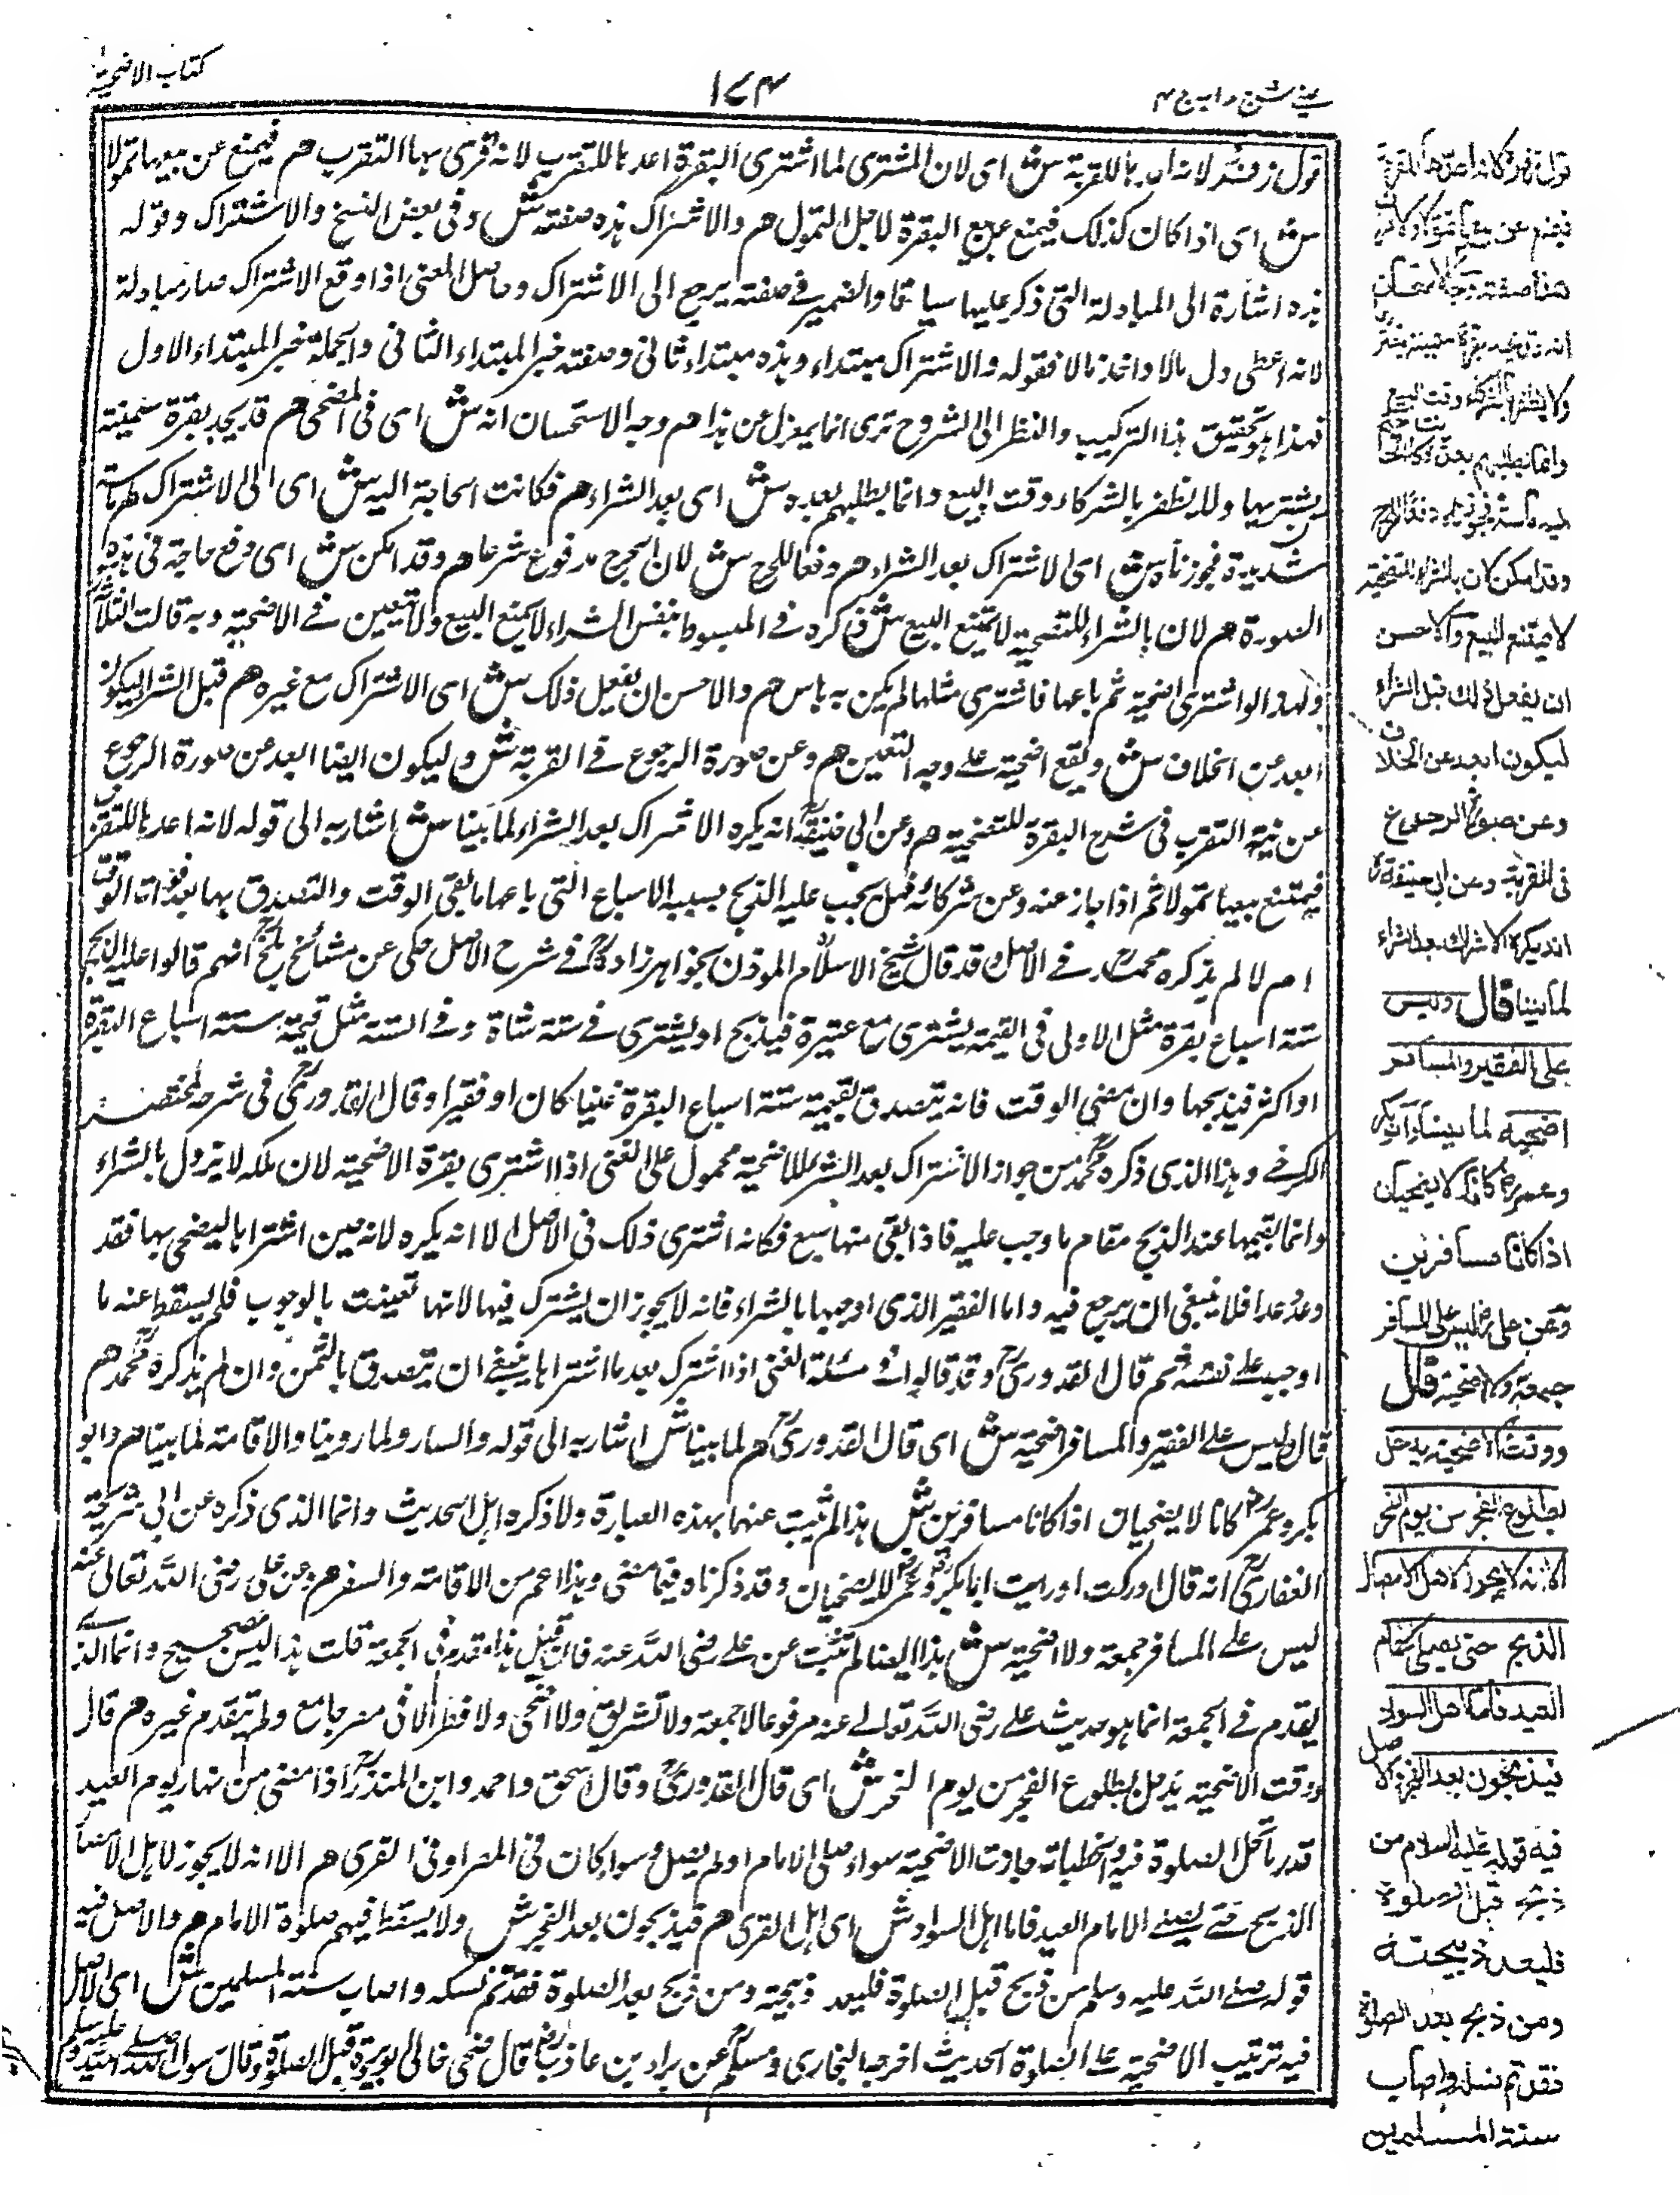 كتاب الاضحية
١٧٤
قول زفر لانه اعدها للقربة ش اى لان المشترى لما اشترى البقرة اعدها للتقرب لانه نوى بها التقرب هم فيمنع عن بيعها تمولا
ش اى اذا كان كذلك فيمنع عن بيع البقرة لاجل التمول هم والاشتراك هذه صفته ش وفى بعض النسخ والاشتراك وقوله
هذه اشارة الى المبادلة التى ذكر عليها سياقا والضمير فے صفته يرجع الى الاشتراك وحاصل المعنى اذا وقع الاشتراك صار مبادلة
لانه اعطى مالا واخذ مالا فقوله والاشتراك مبتداء وهذه مبتداء ثانى وصفته خبر المبتداء الثانى والجملة خبر المبتداء الاول
فهذا هو تحقيق هذا التركيب والنظر الى الشروح ترى انها بمعزل عن هذا هم وجه الاستحسان انه ش اى فى المضحى هم قد يجد بقرة سمينة
يشتريها ولا يظفر بالشركاء وقت البيع وانما يطلبهم بعده ش اى بعد الشراء هم فكانت الحاجة اليه ش اى الى الاشتراك هم ماسة
شديدة فجوزناه ش اى الاشتراك بعد الشراء هم دفعا للحرج ش لان الحرج مدفوع شرعا هم وقد امكن ش اى دفع حاجة فى هذه
الصورة هم لان بالشراء للتضحية لا يمتنع البيع ش ذكره فے المبسوط بنفس الشراء لا يمنع البيع ولا تعيين فے الاضحية وبه قالت الثلاثة
ولهذا لو اشترى اضحية ثم باعها فاشترى مثلها لم يكن به باس هم والاحسن ان يفعل ذلك ش اى الاشتراك مع غيره هم قبل الشراء ليكون
ابعد عن الخلاف ش ويقع اضحية علے وجه التعيين هم وعن صورة الرجوع فے القربة ش وليكون ايضا ابعد عن صورة الرجوع
عن نية التقرب فى شرح البقرة للتضحية هم وعن ابى حنيفة انه يكره الاشتراك بعد الشراء لما بينا ش اشار به الى قوله لانه اعدها للتقرب
فيمتنع بيعها تمولا ثم اذا جاز عنه وعن شركائه فهل يجب عليه الذبح بسبب الاسباع التى باعها ما بقى الوقت والتصدق بها بعد فوات الوقت
ام لا لم يذكره محمد فے الاصل وقد قال شيخ الاسلام المؤذن بخواهرزاده فے شرح الاصل حكى عن مشائخ بلخ انهم قالوا عليه الذبح
ستة اسباع بقرة مثل الاولى فى القيمة يشترى مع عشيرة فيذبح او يشترى فے ستة شاة وفے الستة مثل قيمة ستة اسباع البقرة
او اكثر فيذبحها وان مضى الوقت فانه يتصدق بقيمة ستة اسباع البقرة غنيا كان او فقيرا وقال القدورى فى شرحه لمختصر
الكرخے وهذا الذى ذكره محمد من جواز الاشتراك بعد الشراء للاضحية محمول على الغنى اذا اشترى بقرة الاضحية لان ملكه لا يزول بالشراء
وانما يقيمها عند الذبح مقام ما وجب عليه فاذا بقى منها سبع فكانه اشترى ذلك فى الاصل الا انه يكره لانه حين اشتراها ليضحى بها فقد
وعد وعدا فلا ينبغى ان يرجع فيه واما الفقير الذى اوجبها بالشراء فانه لا يجوز ان يشترك فيها لانها تعينت بالوجوب فلم يسقط عنه ما
اوجبه علے نفسه ثم قال القدورى وقد قالوا فے مسئلة الغنى اذا اشترك بعد ما اشتراها ينبغے ان يتصدق بالثمن وان لم يذكره محمد هم
قال وليس علے الفقير والمسافر اضحية ش اى قال القدورى هم لما بينا ش اشار به الى قوله واليسار ولما روينا والاقامة لما بينا هم وابو
بكر وعمر كانا لا يضحيان اذا كانا مسافرين ش هذا لم يثبت عنهما بهذه العبارة ولا ذكره اهل الحديث وانما الذى ذكره عن ابى شريحة
الغفارى انه قال ادركت او رايت ابا بكر وعمر لا يضحيان وقد ذكرناه فيما مضى وهذا اعم من الاقامة والسفر هم وعن على رضى الله تعالى عنه
ليس علے المسافر جمعة ولا اضحية ش هذا ايضا لم يثبت عن علے رضى الله عنه فان قيل هذا تقدم فى الجمعة قلت هذا ليس بصحيح وانما الذے
تقدم فے الجمعة انما هو حديث علے رضى الله تعالے عنه مرفوعا لا جمعة ولا تشريق ولا اضحى ولا فطر الا فى مصر جامع ولم يتقدم غيره هم قال
ووقت الاضحية يدخل بطلوع الفجر من يوم النحر ش اى قال القدورى وقال اسحق واحمد وابن المنذر اذا مضى من نهار يوم العيد
قدر ما تحل الصلوة فيه والخطبات جازت الاضحية سواء صلى الامام او لم يصل وسواء كان فى المصر او فى القرى هم الا انه لا يجوز لاهل الامصار
الذبح حتے يصلے الامام العيد فاما اهل السواد ش اى اهل القرى هم فيذبحون بعد الفجر ش ولا يسقط فيهم صلوة الامام هم والاصل فيه
قوله صلے الله عليه وسلم من ذبح قبل الصلوة فليعد ذبيحته ومن ذبح بعد الصلوة فقد تم نسكه واصاب سنة المسلمين ش اى الاصل
فيه ترتيب الاضحية علے الصلوة الحديث اخرجه البخارى ومسلم عن براء بن عازب قال ضحى خالى ابو بردة قبل الصلوة وقال رسول الله صلے الله عليه وسلم
قول زفر لانه اعدها للقربة
فيمنع عن بيعها تمولا والاشتراك
هذا صفته وجه الاستحسان
انه قد يجد بقرة سمينة يشتريها
ولا يظفر بالشركاء وقت البيع
وانما يطلبهم بعده فكانت الحاجة
اليه ماسة فجوزناه دفعا للحرج
وقد امكن لان بالشراء للتضحية
لا يمتنع البيع والاحسن
ان يفعل ذلك قبل الشراء
ليكون ابعد عن الخلاف
وعن صورة الرجوع
فى القربة وعن ابى حنيفة
انه يكره الاشتراك بعد الشراء
لما بينا قال وليس
على الفقير والمسافر
اضحية لما بينا وابو بكر
وعمر كانا لا يضحيان
اذا كانا مسافرين
وعن على وليس على المسافر
جمعة ولا اضحية قال
ووقت الاضحية يدخل
بطلوع الفجر من يوم النحر
الا انه لا يجوز لاهل الامصار
الذبح حتى يصلى الامام
العيد فاما اهل السواد
فيذبحون بعد الفجر والاصل
فيه قوله عليه السلام من
ذبح قبل الصلوة
فليعد ذبيحته
ومن ذبح بعد الصلوة
فقد تم نسكه واصاب
سنة المسلمين